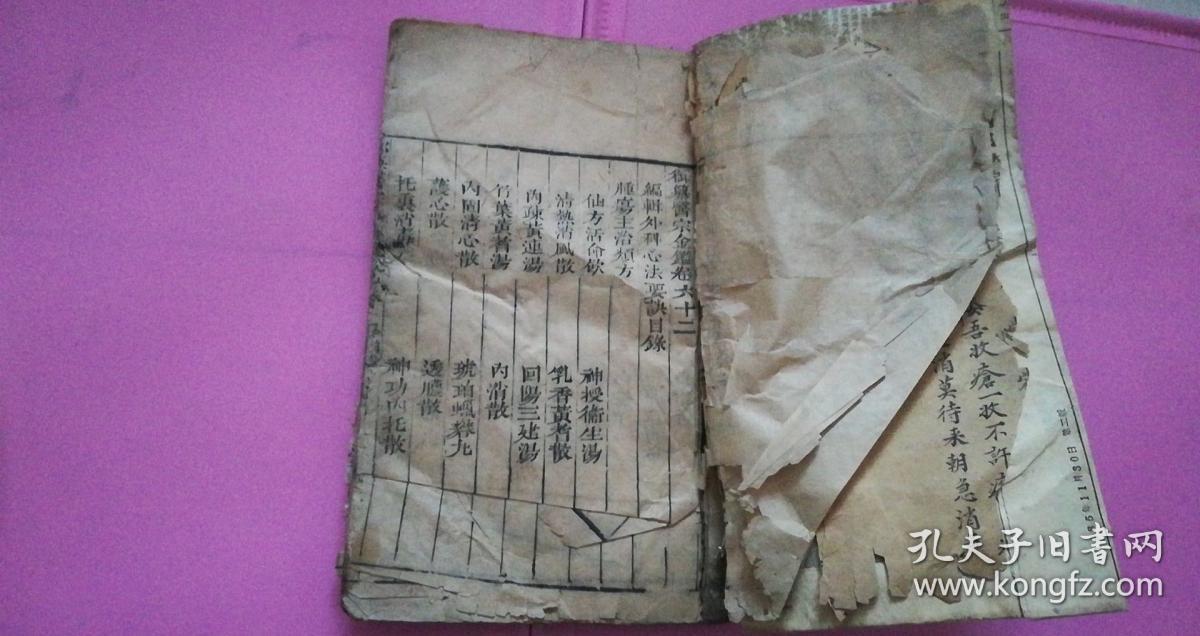 御纂醫宗金鑑卷六十二
編輯外科心法要訣目錄
腫瘍主治類方
仙方活命飲
神授衛生湯
清熱消風散
乳香黃耆散
內疎黃連湯
回陽三建湯
竹葉黃耆湯
內消散
內固清心散
琥珀蠟礬丸
護心散
透膿散
托裏消毒散
神功內托散
吾收瘡一收不許
消莫待来朝急消
5年11月30日
孔夫子旧書网
www.kongfz.com